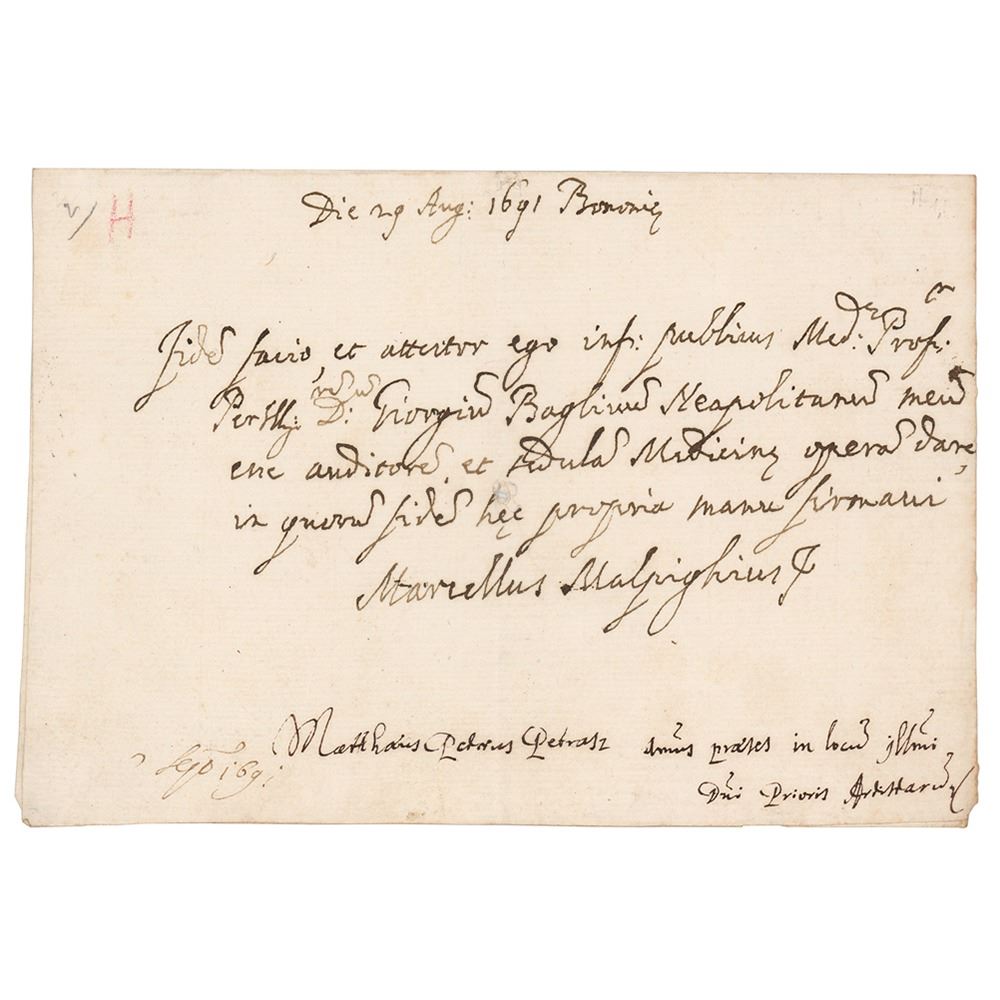 2/ H
Die 29 Aug: 1691 Bononię
fidē facio et attestor ego infr: publicus Med: Prof:
Perill: D: Giorgiū Baglivum Neapolitanū meū
esse auditorē, et sedulā Medicinę operā dare,
in quorū fidē hęc propria manu firmavi
Marcellus Malpighius
Matthæus Petrus Petrasz Annus præses in locū illmi
Dni Prioris Artistarū
Sept 1691